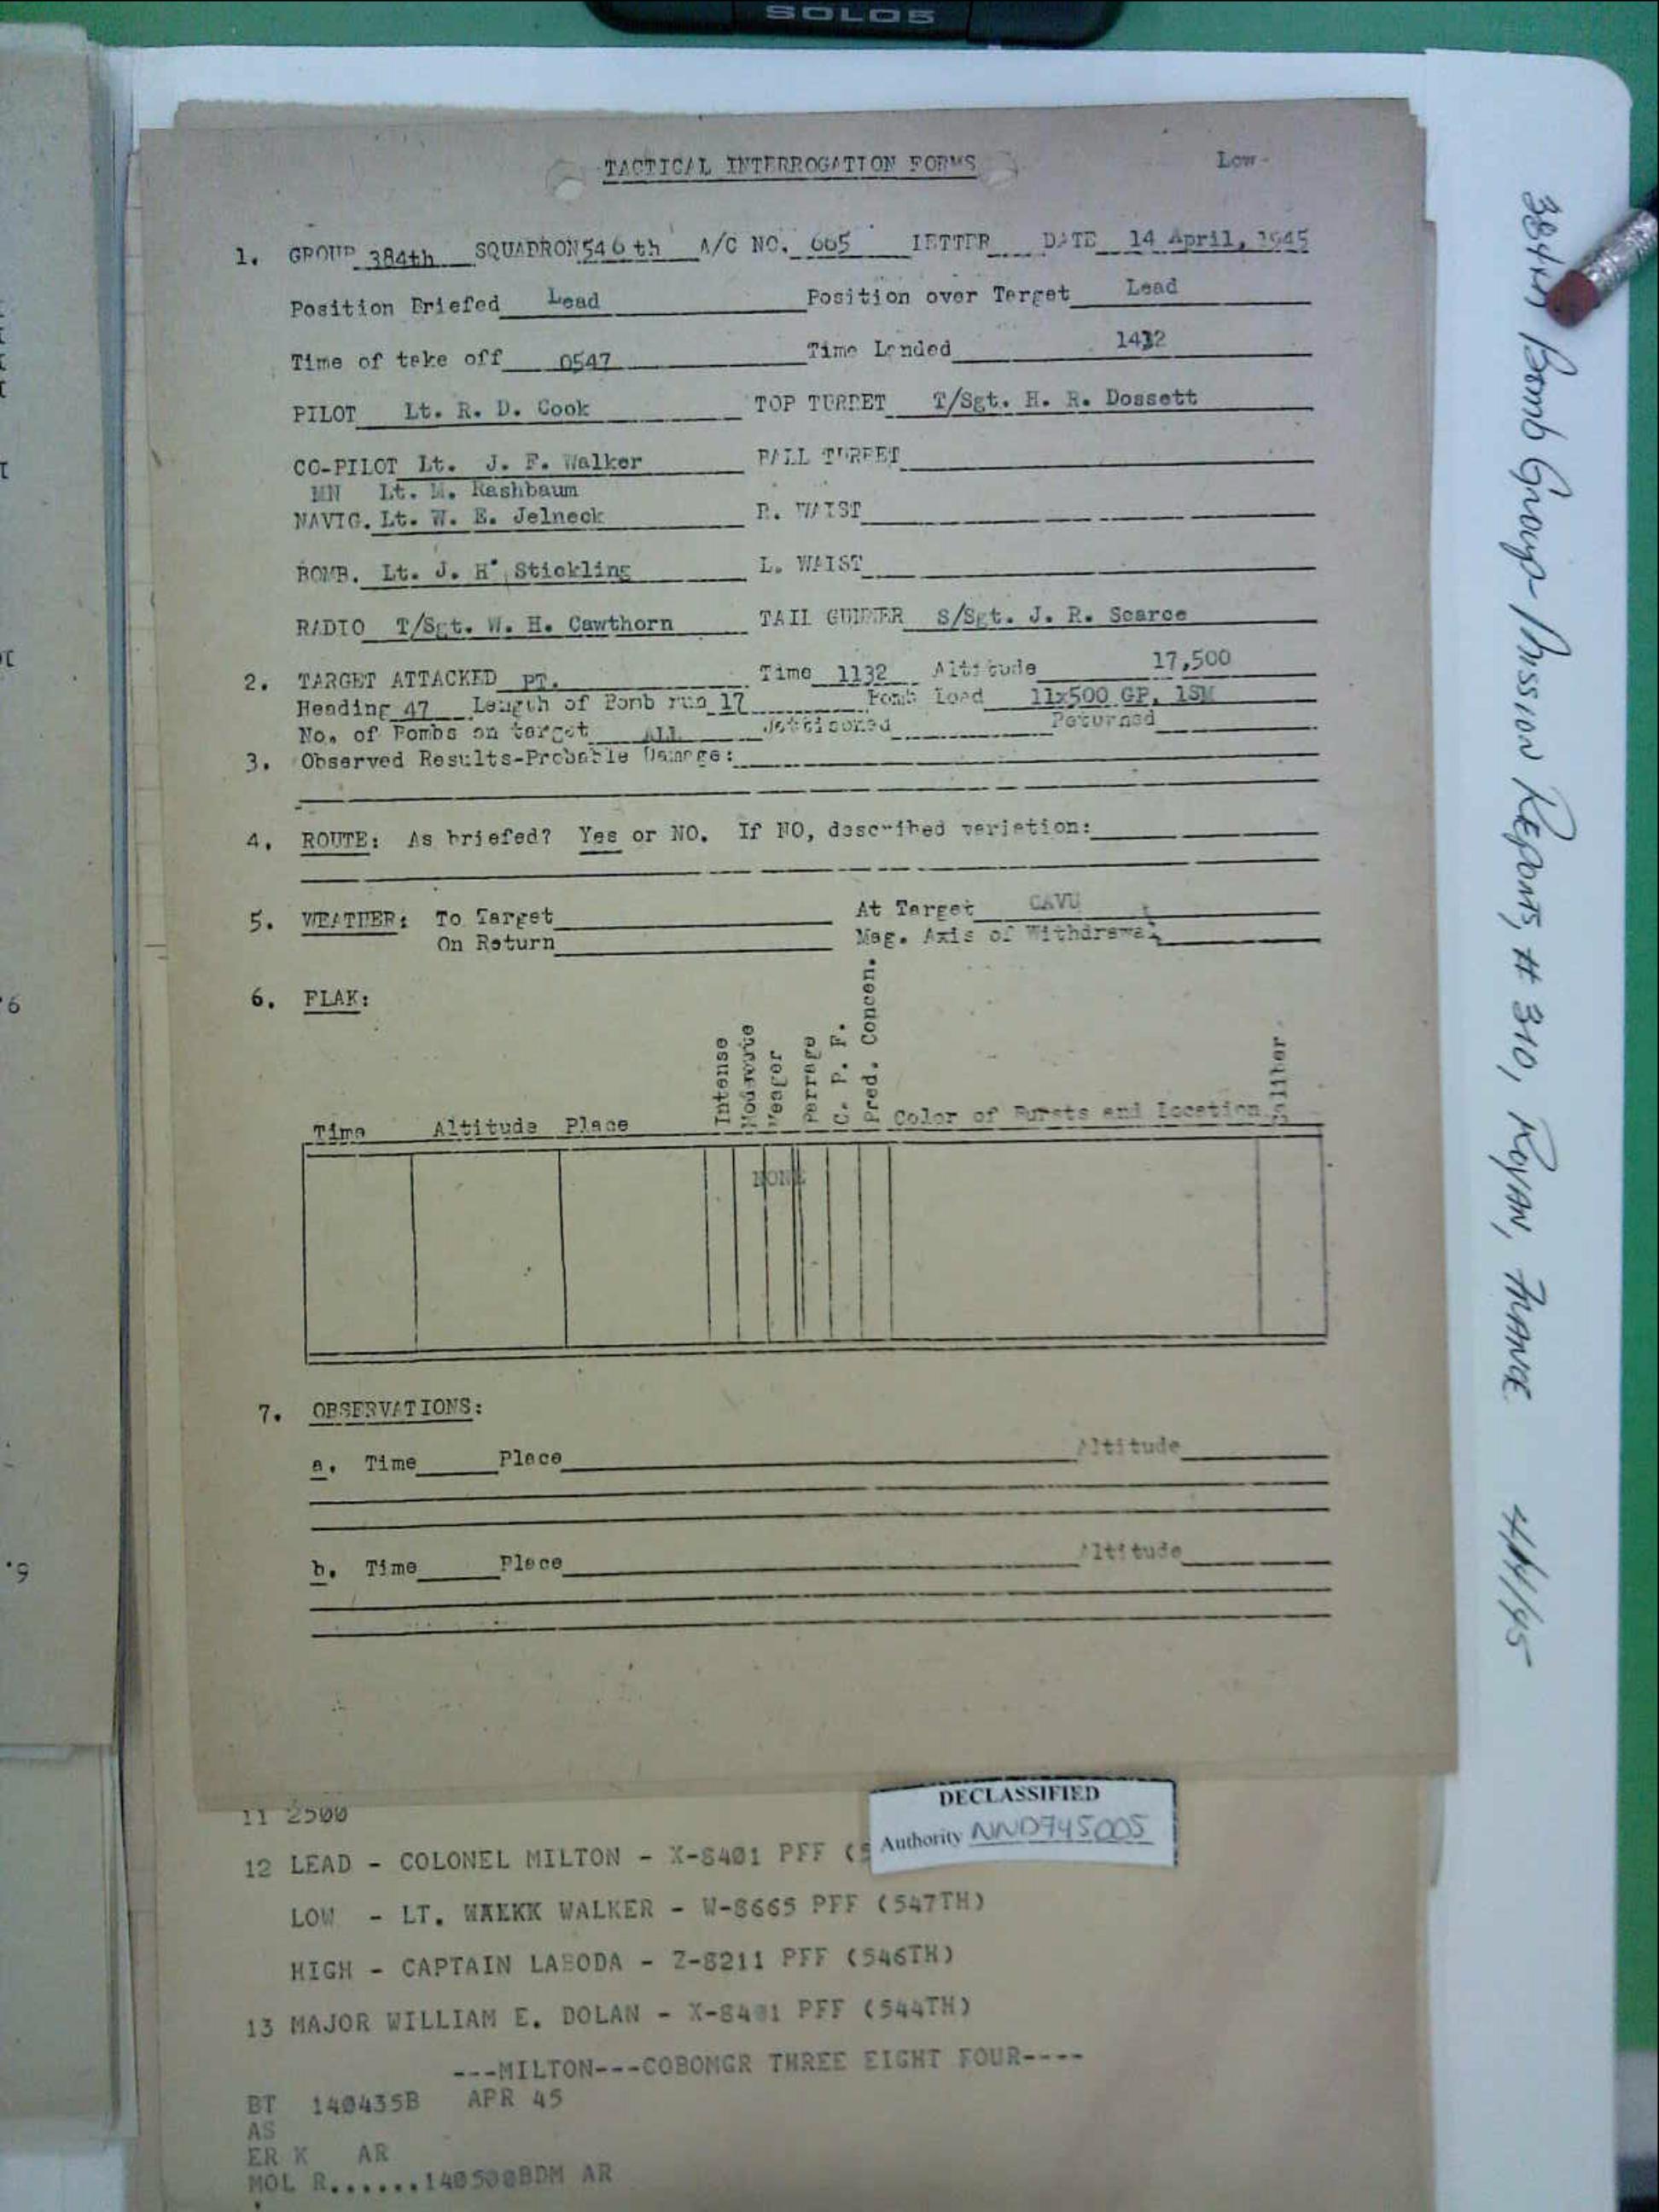 SOLO5
TACTICAL INTERROGATION FORMS Low-
1. GROUP 384th SQUADRON 546 th A/C NO. 665 LETTER DATE 14 April, 1945
Position Briefed Lead Position over Target Lead
Time of take off 0547 Time Landed 1432
PILOT Lt. R. D. Cook TOP TURRET T/Sgt. H. R. Dossett
CO-PILOT Lt. J. F. Walker BALL TURRET
MN Lt. M. Rashbaum
NAVIG. Lt. W. E. Jelneck R. WAIST
BOMB. Lt. J. H. Stickling L. WAIST
RADIO T/Sgt. W. H. Cawthorn TAIL GUNNER S/Sgt. J. R. Scarce
2. TARGET ATTACKED PT. Time 1132 Altitude 17,500
Heading 47 Length of Bomb run 17 Bomb Load 11x500 GP, 1SM
No. of Bombs on target All Jettisoned Returned
3. Observed Results-Probable Damage:
4. ROUTE: As briefed? Yes or NO. If NO, described variation:
5. WEATHER: To Target At Target CAVU
On Return Mag. Axis of Withdrawal
6. FLAK:
Time Altitude Place Intense Moderate Meager Barrage C. P. F. Pred. Concen. Color of Bursts and Location Caliber
NONE
7. OBSERVATIONS:
a. Time Place Altitude
b. Time Place Altitude
11 2500
12 LEAD - COLONEL MILTON - X-8401 PFF (5
LOW - LT. WAEKK WALKER - W-8665 PFF (547TH)
HIGH - CAPTAIN LABODA - Z-8211 PFF (546TH)
13 MAJOR WILLIAM E. DOLAN - X-8401 PFF (544TH)
---MILTON---COBOMGR THREE EIGHT FOUR----
BT 140435B APR 45
AS
ER K AR
MOL R......140500BDM AR
DECLASSIFIED
Authority NND745005
384th Bomb Group Mission Reports, # 310, Royan, France 4/14/45